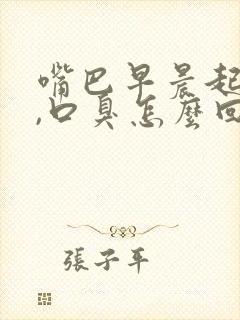 嘴巴早晨起
,口臭怎麼回
張子平